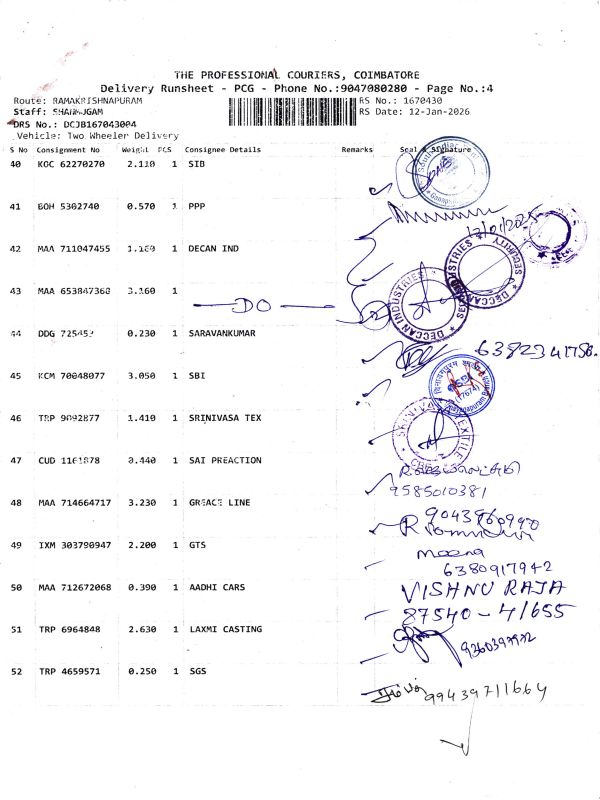 THE PROFESSIONAL COURIERS, COIMBATORE
Delivery Runsheet - PCG - Phone No.:9047080280 - Page No.:4
Route: RAMAKRISHNAPURAM
RS No.: 1670430
Staff: SHANMUGAM
RS Date: 12-Jan-2026
DRS No.: DCJB167043004
Vehicle: Two Wheeler Delivery
S No Consignment No Weight PCS Consignee Details Remarks Seal & Signature
40 KOC 62270270 2.110 1 SIB
41 BOH 5302740 0.570 1 PPP
42 MAA 711047455 1.160 1 DECAN IND
43 MAA 653847368 3.160 1
DO
DECCAN INDUSTRIES
DECCAN INDUSTRIES SECURITY
44 DDG 72545 0.230 1 SARAVANKUMAR
6382341758.
45 KCM 70048077 3.050 1 SBI
46 TRP 9092877 1.410 1 SRINIVASA TEX
47 CUD 1161878 0.440 1 SAI PREACTION
9585010381
48 MAA 714664717 3.230 1 GREACE LINE
9043960990
49 IXM 303790947 2.200 1 GTS
meena
6380917942
50 MAA 712672068 0.390 1 AADHI CARS
VISHNU RAJA
87540-41655
51 TRP 6964848 2.630 1 LAXMI CASTING
9360397972
52 TRP 4659571 0.250 1 SGS
99439711664